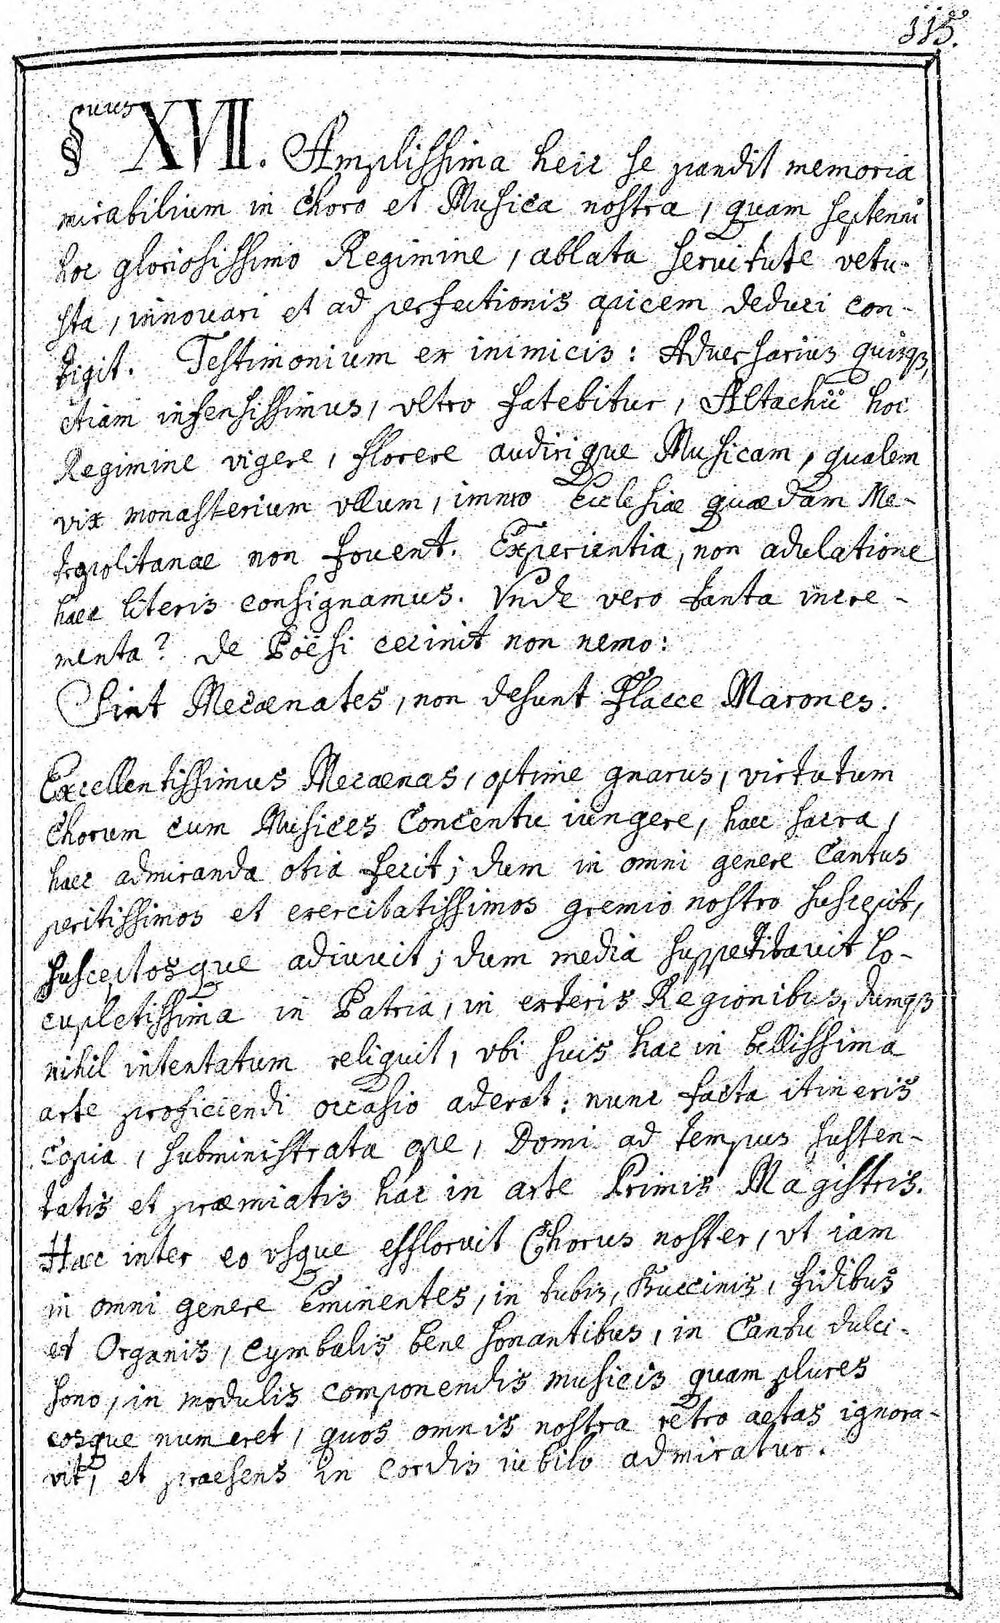 115.
§uus XVII. Amplissima heic se pandit memoria
mirabilium in Choro et Musica nostra, quam septenni
hoc gloriosissimo Regimine, ablata servitute vetu-
sta, innovari et ad perfectionis apicem deduci con-
tigit. Testimonium ex inimicis: Adversarius quisqȝ,
etiam infensissimus, vltro fatebitur, Altachii hoc
Regimine vigere, florere audirique Musicam, qualem
vix monasterium vllum, immo Ecclesiæ quædam Me-
tropolitanae non fovent. Experientia, non adulatione
haec literis consignamus. Vnde vero tanta incre-
menta? de Poësi cecinit non nemo:
Sint Mecænates, non desunt Flacce Marones.
Excellentissimus Mecaenas, optime gnarus, virtutum
Chorum cum Musices Concentu iungere, haec sacra,
haec admiranda otia fecit; dum in omni genere Cantus
peritissimos et exercitatissimos gremio nostro suscepit,
susceptosque adiuvit; dum media suppeditavit lo-
cupletissima in Patria, in exteris Regionibus, dumqȝ
nihil intentatum reliquit, vbi suis hac in bellissima
arte proficiendi occasio aderat: nunc facta itineris
Copia, subministrata ope, Domi ad tempus susten-
tatis et præmiatis hac in arte Primis Magistris.
Haec inter eo vsque effloruit Chorus noster, vt iam
in omni genere Eminentes, in tubis, Buccinis, fidibus
et Organis, Cymbalis bene sonantibus, in Cantu dulci-
sono, in modulis componendis musicis quam plures
eosque numeret, quos omnis nostra retro aetas ignora-
vit, et praesens in Cordis iubilo admiratur.